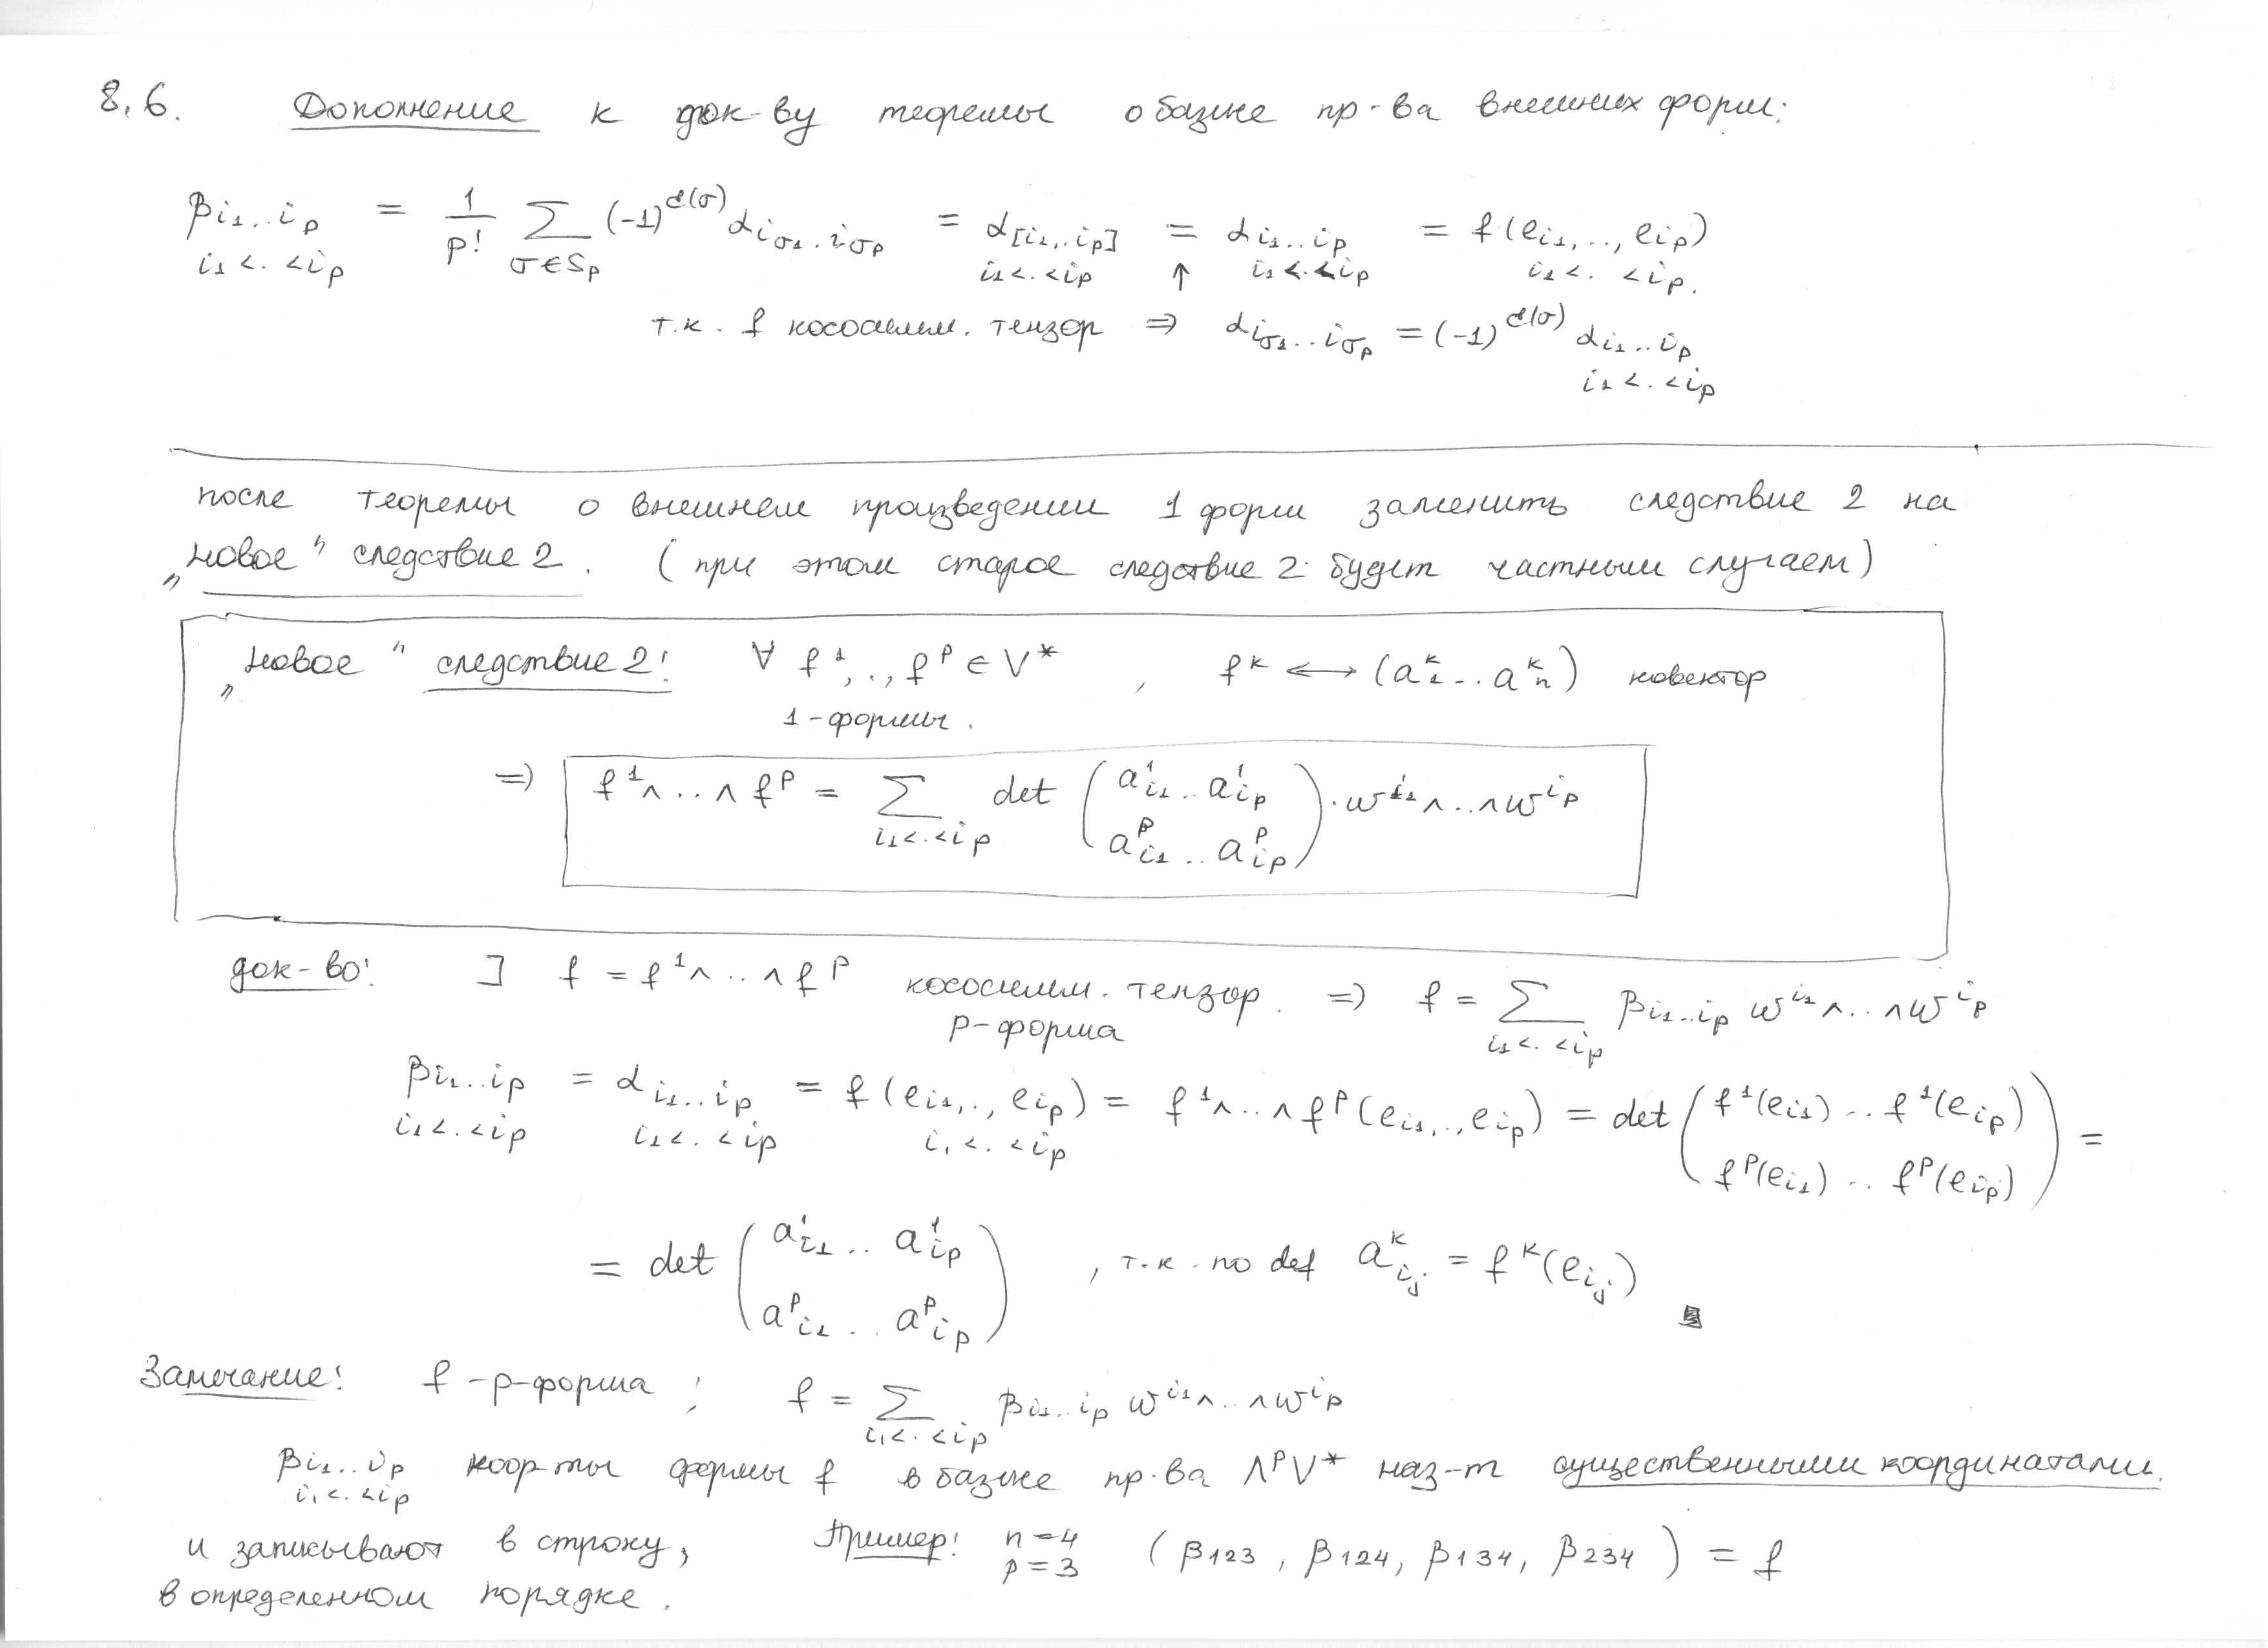 8.6. Дополнение к док-ву теоремы о базисе пр-ва внешних форм:
β_{i₁..i_p} = 1/p! ∑_{σ∈S_p} (-1)^{d(σ)} α_{i_{σ₁}..i_{σ_p}} = α_{[i₁..i_p]} = α_{i₁..i_p} = f(e_{i₁},..,e_{i_p})
i₁<..<i_p i₁<..<i_p ↑ i₁<..<i_p i₁<..<i_p.
т.к. f кососимм. тензор ⇒ α_{i_{σ₁}..i_{σ_p}} = (-1)^{d(σ)} α_{i₁..i_p}
i₁<..<i_p
после теоремы о внешнем произведении 1 форм заменить следствие 2 на
„новое" следствие 2. (при этом старое следствие 2 будет частным случаем)
„новое" следствие 2: ∀ f¹,..,f^p ∈ V* , f^k ⟷ (a^k_1 .. a^k_n) ковектор
1-формы.
⇒ f¹∧..∧f^p = ∑_{i₁<..<i_p} det ( a¹_{i₁} .. a¹_{i_p} ) · w^{i₁}∧..∧w^{i_p}
( a^p_{i₁} .. a^p_{i_p} )
док-во: ] f = f¹∧..∧f^p кососимм. тензор. ⇒ f = ∑_{i₁<..<i_p} β_{i₁..i_p} w^{i₁}∧..∧w^{i_p}
p-форма
β_{i₁..i_p} = α_{i₁..i_p} = f(e_{i₁},..,e_{i_p}) = f¹∧..∧f^p(e_{i₁},..,e_{i_p}) = det ( f¹(e_{i₁}) .. f¹(e_{i_p}) ) =
i₁<..<i_p i₁<..<i_p i₁<..<i_p ( f^p(e_{i₁}) .. f^p(e_{i_p}) )
= det ( a¹_{i₁} .. a¹_{i_p} ) , т.к. по def a^k_{i_j} = f^k(e_{i_j})
( a^p_{i₁} .. a^p_{i_p} )
Замечание: f -p-форма ; f = ∑_{i₁<..<i_p} β_{i₁..i_p} w^{i₁}∧..∧w^{i_p}
β_{i₁..i_p} коор-ты формы f в базисе пр-ва Λ^pV* наз-т существенными координатами.
i₁<..<i_p
и записывают в строку, Пример: n=4 (β₁₂₃, β₁₂₄, β₁₃₄, β₂₃₄) = f
p=3
в определенном порядке.